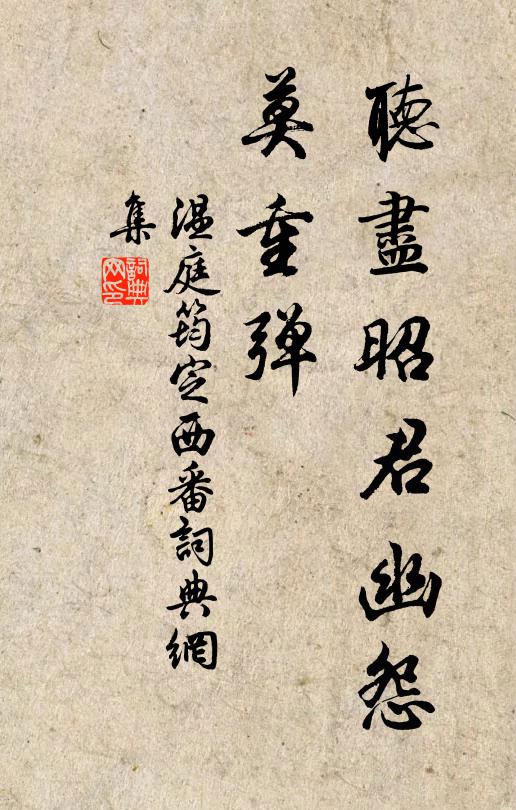 聽盡昭君幽怨
莫重彈
温庭筠定西番詞典網
集
詞典
网印